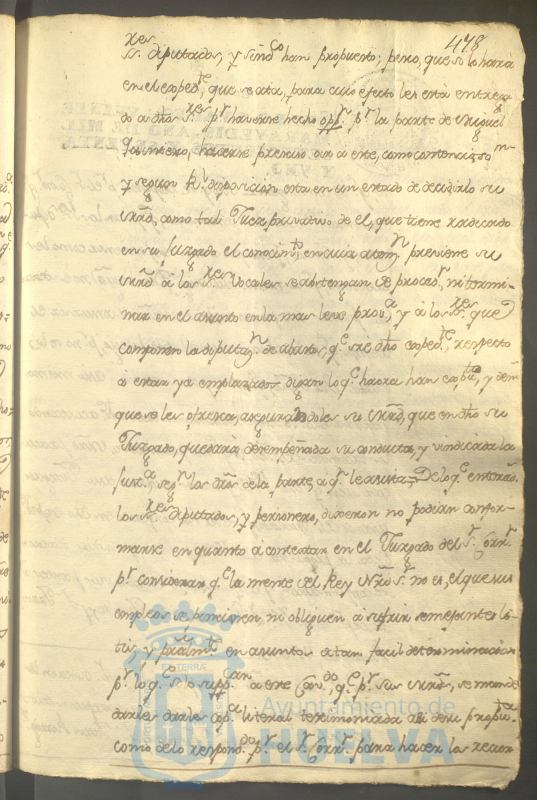 478
res
ss. diputados, y sindco han propuesto; pero, que solo hará
en el expedte, que se trata, para cuio efecto les esta entrega
do a dhos sres pr haverse hecho oppn pr la parte de Miguel
Quintero, hacerse preciso oir a este, como contencioso
y segun Rl disposicion esta en un estado de decidirlo su
mrd, como tal Juez privativo de el, que tiene radicado
en su Juzgado el conocimto, en cuia atenn previene su
mrd á los sres vocales se abstengan de proceder, ni termi-
nar en el asunto en la mas leve provca, y á los sres que
componen la diputan de abastos, qe sre dho expedte, respecto
á estar ya emplazados digan lo qe hasta han expto, y demas
que se les ofrezca, asegurandoles su mrd, que en dho su
Juzgado, quedará desempeñada su conducta, y vindicada la
justa, segn los dros de la parte, a qn le asista. De lo qe enterados
los sres diputados, y personero, dixeron no podian confor-
marse en quanto á contestar en el Juzgado del sr Corr
pr considerar qe la mente del Rey Nro Sr no es, el que sus
empleos se pencionen, ni obliguen á sufrir semejantes li-
tis y pralmte en asuntos de tan facil determinacion
pr lo qe solo suppcan a este Cavdo, qe pr sus mrds, se mande
darles copa literal testimoniada asi de su propta
como de lo respondo pr el sr Corr para hacer los recur
EXTERRÆ
Ayuntamiento de
HUELVA